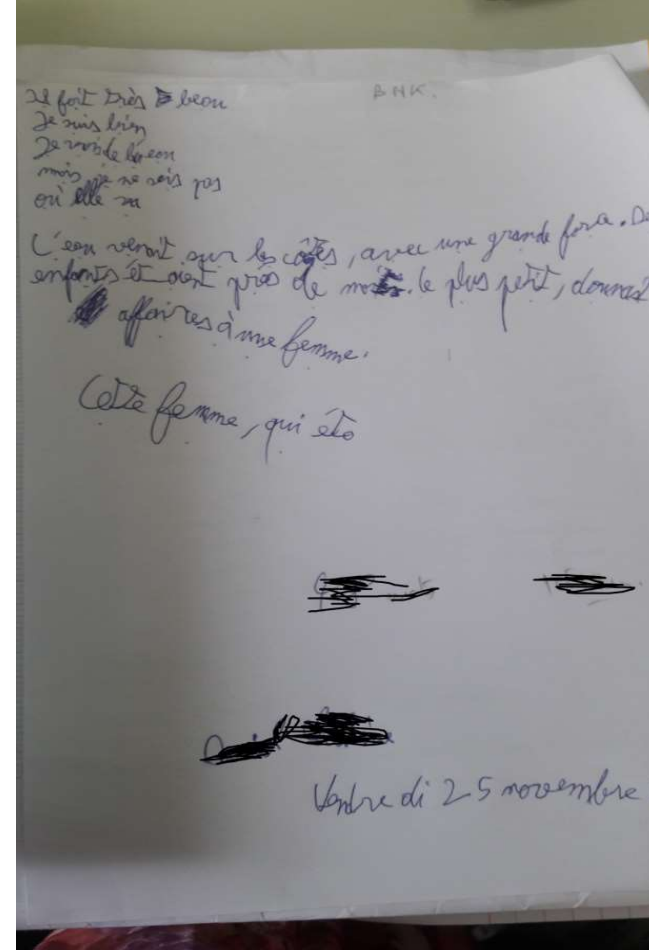 BHK.
Il fait très beau
Je suis bien
Je vois le beau
mais je ne sais pas
où elle va
L'eau venait sur les côtés, avec une grande force. De
enfants étaient près de moi. le plus petit, donnait
affaires à une femme.
Cette femme, qui éta
Vendredi 25 novembre